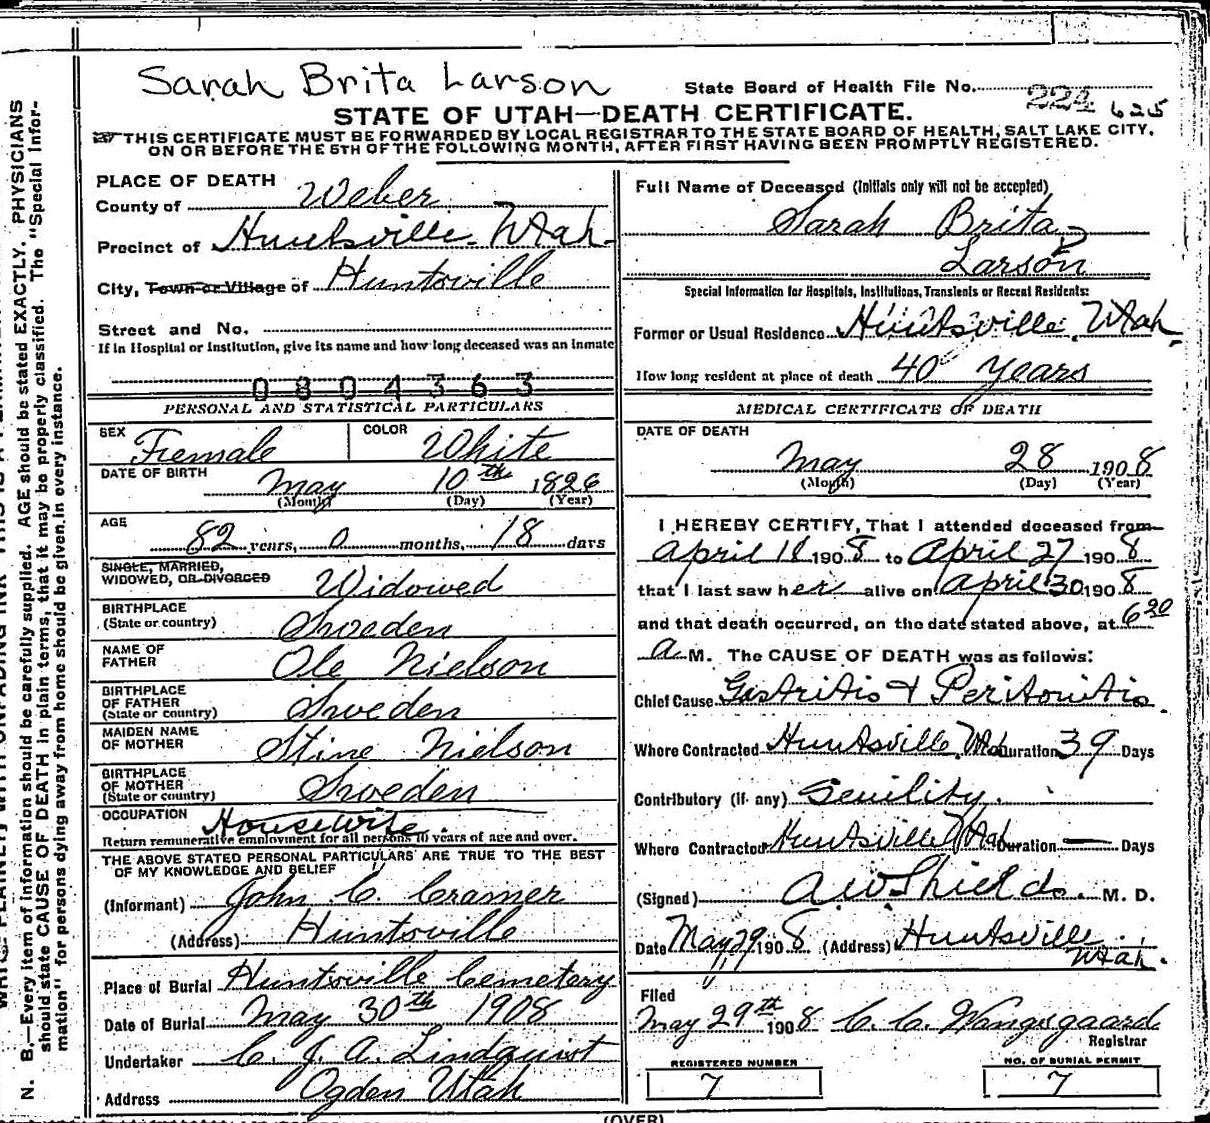 Sarah Brita Larson
State Board of Health File No. 224 625
STATE OF UTAH—DEATH CERTIFICATE.
THIS CERTIFICATE MUST BE FORWARDED BY LOCAL REGISTRAR TO THE STATE BOARD OF HEALTH, SALT LAKE CITY,
ON OR BEFORE THE 5TH OF THE FOLLOWING MONTH, AFTER FIRST HAVING BEEN PROMPTLY REGISTERED.
PLACE OF DEATH
County of Weber
Precinct of Huntsville Utah
City, Town or Village of Huntsville
Street and No.
If in Hospital or Institution, give its name and how long deceased was an inmate
0804363
PERSONAL AND STATISTICAL PARTICULARS
SEX Female COLOR White
DATE OF BIRTH May 10th 1826
(Month) (Day) (Year)
AGE
82 years, 0 months, 18 days
SINGLE, MARRIED,
WIDOWED, OR DIVORCED Widowed
BIRTHPLACE
(State or country) Sweden
NAME OF
FATHER Ole Nielson
BIRTHPLACE
OF FATHER
(State or country) Sweden
MAIDEN NAME
OF MOTHER Stine Nielson
BIRTHPLACE
OF MOTHER
(State or country) Sweden
OCCUPATION Housewife.
Return remunerative employment for all persons 10 years of age and over.
THE ABOVE STATED PERSONAL PARTICULARS ARE TRUE TO THE BEST
OF MY KNOWLEDGE AND BELIEF
(Informant) John C. Cramer
(Address) Huntsville
Place of Burial Huntsville Cemetery
Date of Burial May 30th 1908
Undertaker C. J. A. Lindquist
Address Ogden Utah
Full Name of Deceased (Initials only will not be accepted)
Sarah Brita
Larson
Special Information for Hospitals, Institutions, Transients or Recent Residents:
Former or Usual Residence Huntsville, Utah,
How long resident at place of death 40 years
MEDICAL CERTIFICATE OF DEATH
DATE OF DEATH
May 28 1908
(Month) (Day) (Year)
I HEREBY CERTIFY, That I attended deceased from
April 18 1908 to April 27 1908
that I last saw her alive on April 30 1908
and that death occurred, on the date stated above, at 6 20
a M. The CAUSE OF DEATH was as follows:
Chief Cause Gastritis & Peritonitis.
Where Contracted Huntsville Utah Duration 39 Days
Contributory (if any) Senility.
Where Contracted Huntsville Utah Duration — Days
(Signed) A W Shields. M. D.
Date May 29 1908 (Address) Huntsville
Utah.
Filed
May 29th 1908 C. C. Wangsgaard
Registrar
REGISTERED NUMBER NO. OF BURIAL PERMIT
7 7
(OVER)
N. B.—Every item of information should be carefully supplied. AGE should be stated EXACTLY. PHYSICIANS
should state CAUSE OF DEATH in plain terms, that it may be properly classified. The "Special Infor-
mation" for persons dying away from home should be given in every instance.